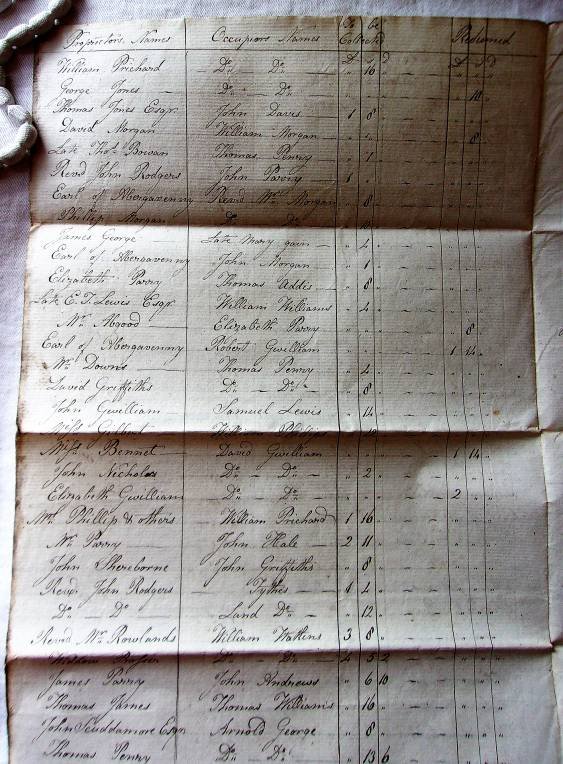 Proprietors Names Occupiers Names To be Collected Redeemed
£ s D £ s D
William Prichard Do Do " 16 "
George Jones Do Do " 10 "
Thomas Jones Esqr John Davis 1 8
David Morgan William Morgan " 8 "
Late Thos Bowan Thomas Penry " 1
Revd John Rodgers John Parry 1 "
Earl of Abergavenny Revd Mr Morgan " 8
Phillip Morgan Do Do
James George Late Mary " 4
Earl of Abergavenny John Morgan " 1
Elizabeth Parry Thomas Addis " 8
Late E. T. Lewis Esqr William Williams " 4
Mr Abgood Elizabeth Parry " 8
Earl of Abergavenny Robert Gwilliam 1 14
Mr Downs Thomas Penry " 4
David Griffiths Do Do " 8
John Gwilliam Samuel Lewis " 14
Miss Phillips
Miss Bennet David Gwilliam 1 14 "
John Nicholas Do Do " 2
Elizabeth Gwilliam Do Do 2 "
Mr Phillip & others William Prichard 1 16
Mr Parry John Hale 2 11
John Shereborne John Griffiths " 8
Revd John Rodgers Tythes 1 4
Do Do Land Do " 12
Revnd Mr Rowlands William Watkins 3 8
Do Do 2
James Parry John Andrews " 6 10
Thomas James Thomas Williams " 16
John Scuddamore Esqr Arnold George " 8
Thomas Penry Do Do " 13 6